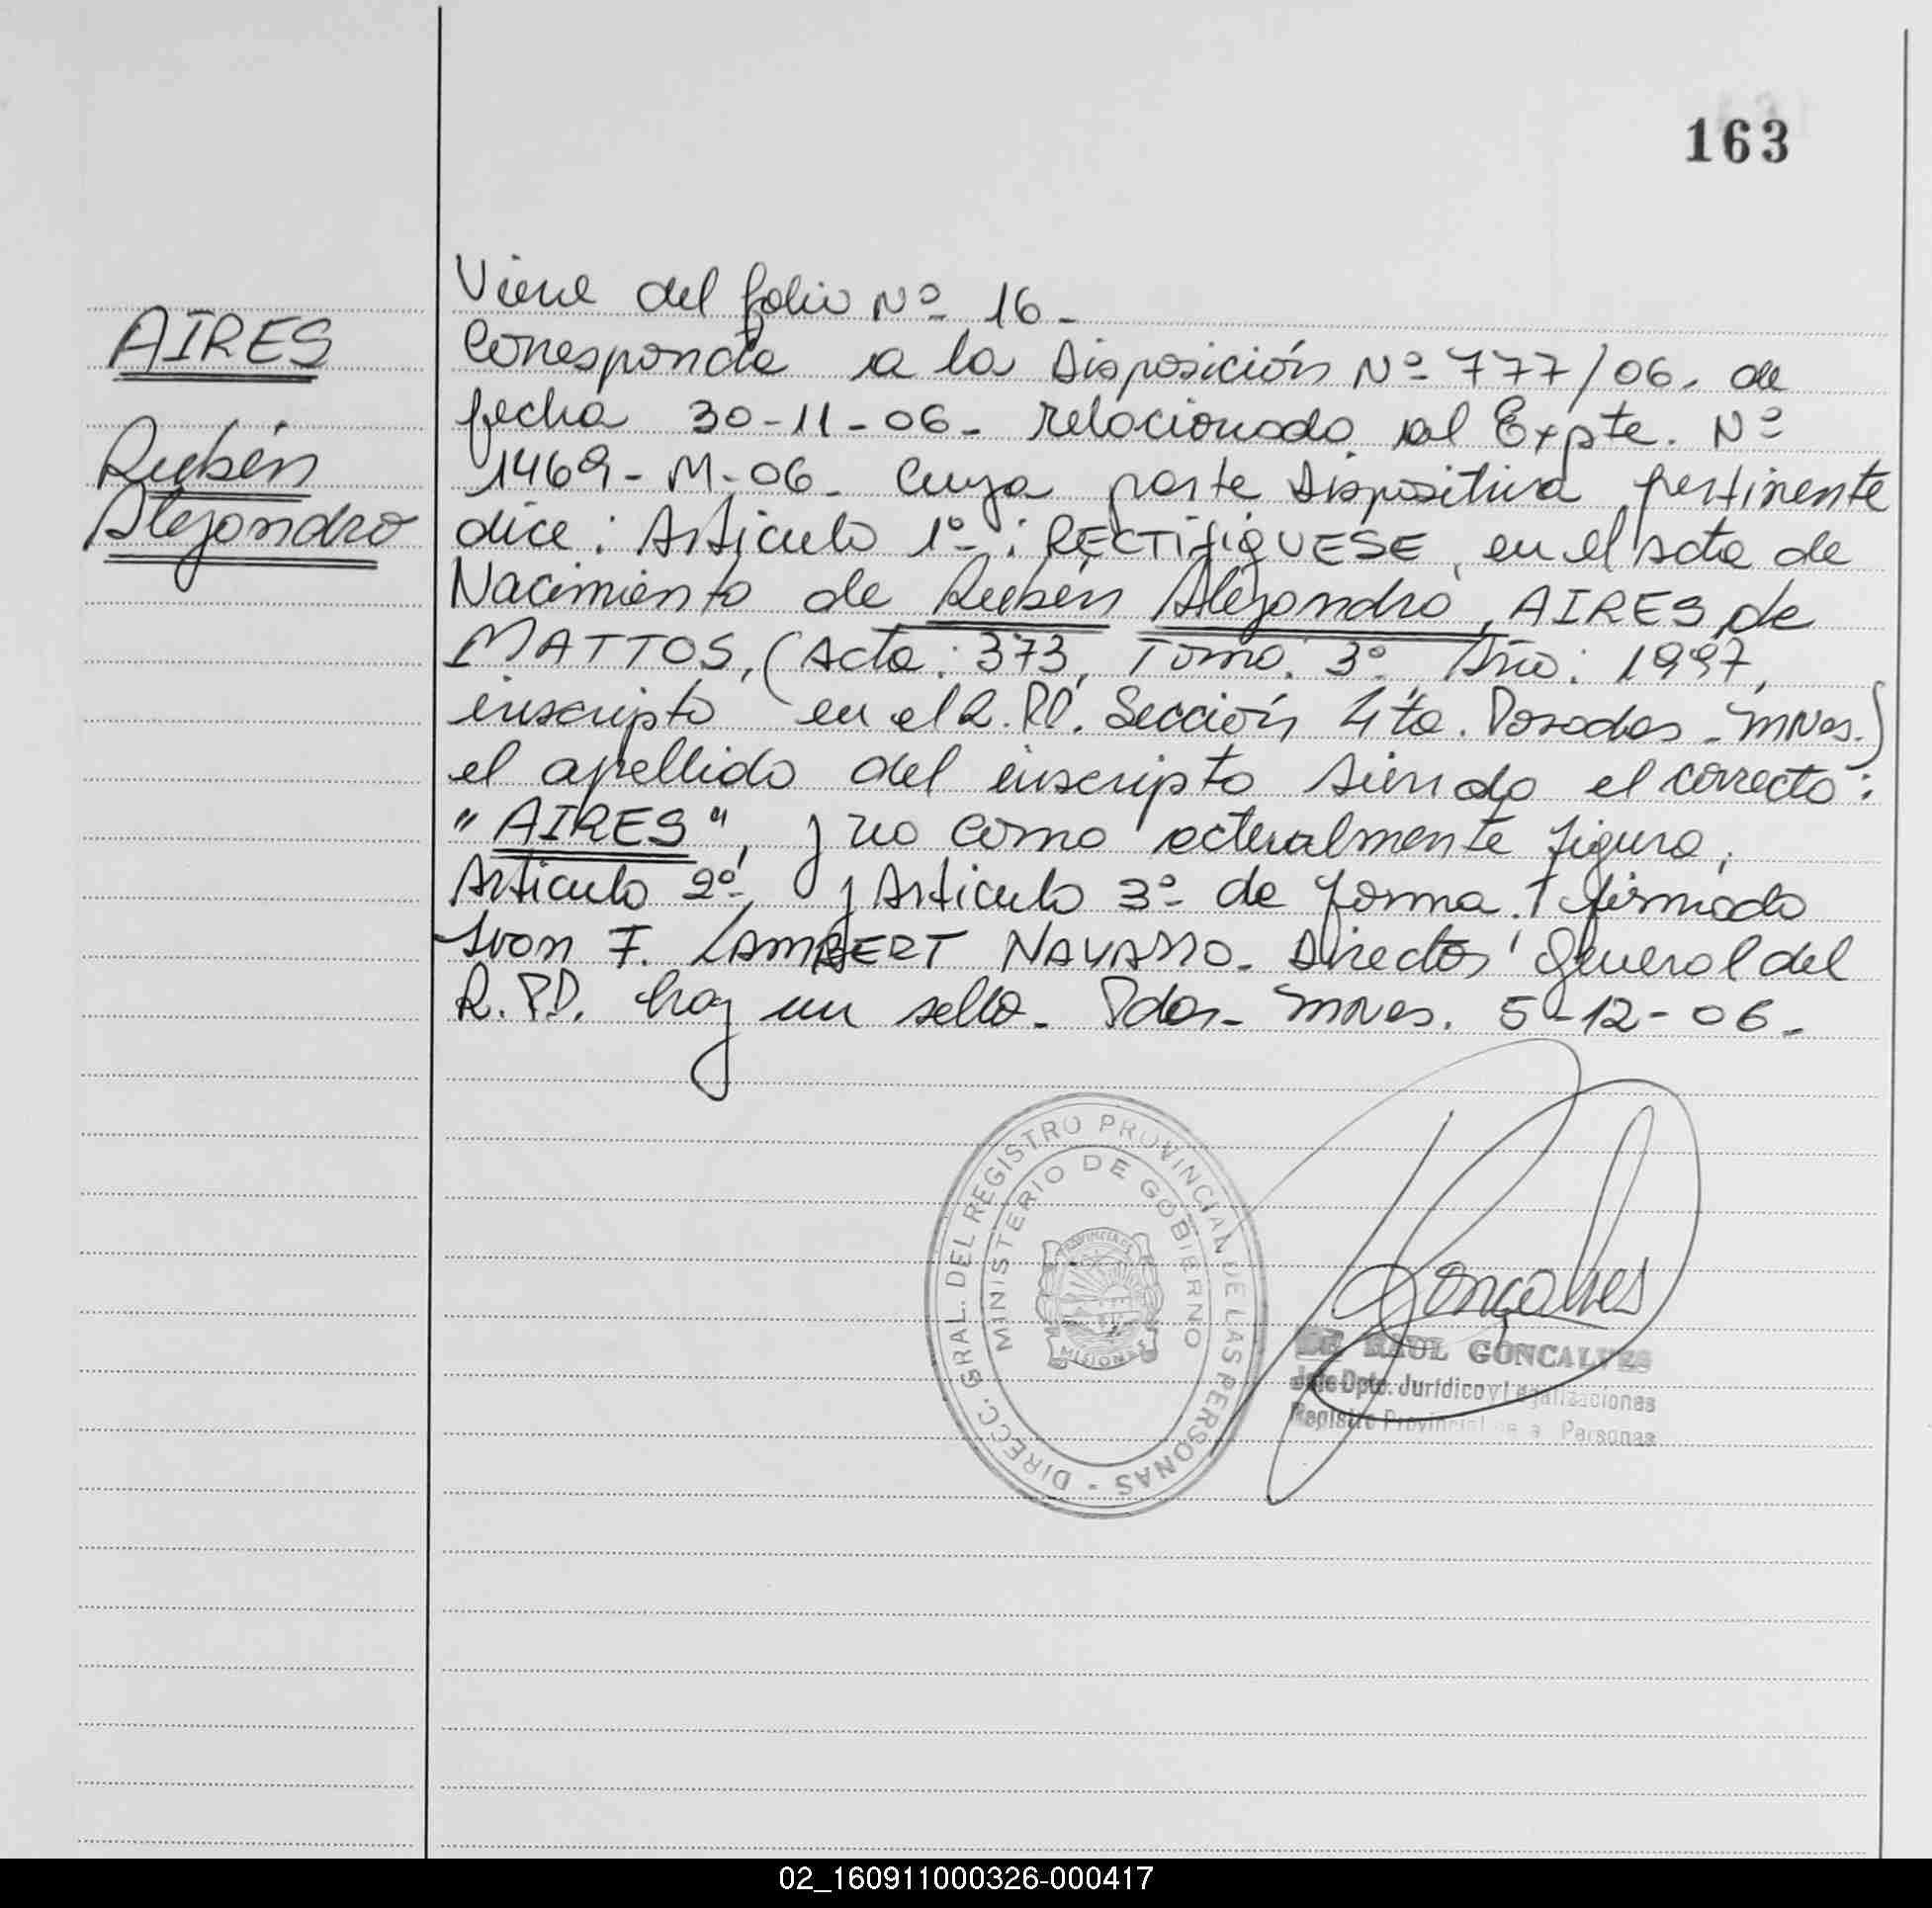 163
AIRES
Rubén
Alejandro
Viene del folio Nº 16.-
Corresponde a la Disposición Nº 777/06. de
fecha 30-11-06.- relacionado al Expte. Nº
1469-M-06. Cuya parte dispositiva pertinente
dice: Artículo 1º: RECTIFIQUESE, en el acta de
Nacimiento de Rubén Alejandro, AIRES de
MATTOS, (Acta: 373, Tomo: 3º Año: 1997,
inscripto en el R.PP. Sección 4ta. Posadas - Mnes.)
el apellido del inscripto siendo el correcto:
"AIRES", y no como actualmente figura.
Artículo 2º, y Artículo 3º de forma. firmado
Ivon F. LAMBERT NAVARRO. Director General del
R.PP. hay un sello. Pdas- Mnes. 5-12-06.-
DIRECC. GRAL. DEL REGISTRO PROVINCIAL DE LAS PERSONAS -
MINISTERIO DE GOBIERNO
PROVINCIA DE
MISIONES
Gonçalves
RAUL GONCALVES
Jefe Dpto. Jurídico y Legalizaciones
Registro Provincial Personas
02_160911000326-000417